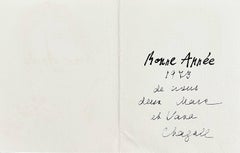 Bonne Année
1973
de nous
deux Marc
et Vava
Chagall